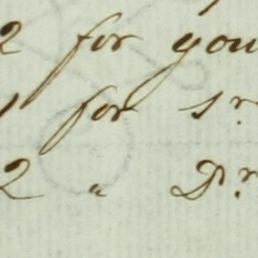 2 for you
1 for Sr
2 " Dr